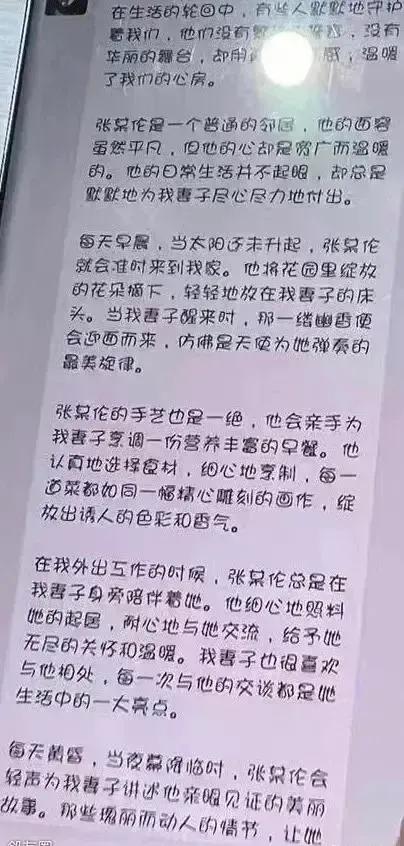 在生活的轮回中，有些人默默地守护
着我们，他们没有
没有
华丽的舞台，却用
感，温暖
了我们的心房。
张某伦是一个普通的邻居，他的面容
虽然平凡，但他的心却是宽广而温暖
的。他的日常生活并不起眼，却总是
默默地为我妻子尽心尽力地付出。
每天早晨，当太阳还未升起，张某伦
就会准时来到我家。他将花园里绽放
的花朵摘下，轻轻地放在我妻子的床
头。当我妻子醒来时，那一缕幽香便
会迎面而来，仿佛是天使为她弹奏的
最美旋律。
张某伦的手艺也是一绝，他会亲手为
我妻子烹调一份营养丰富的早餐。他
认真地选择食材，细心地烹制，每一
道菜都如同一幅精心雕刻的画作，绽
放出诱人的色彩和香气。
在我外出工作的时候，张某伦总是在
我妻子身旁陪伴着她。他细心地照料
她的起居，耐心地与她交流，给予她
无尽的关怀和温暖。我妻子也很喜欢
与他相处，每一次与他的交谈都是她
生活中的一大亮点。
每天黄昏，当夜幕降临时，张某伦会
轻声为我妻子讲述他亲眼见证的美丽
故事。那些瑰丽而动人的情节，让她